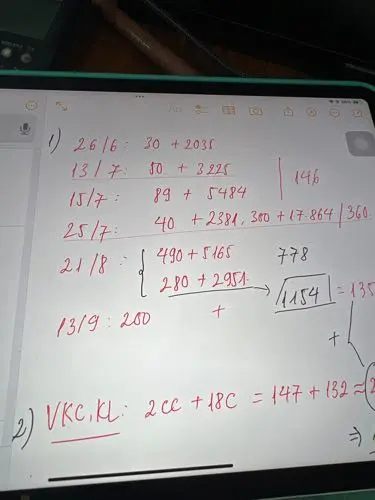 1) 26/6: 30 + 2035
13/7: 50 + 3225
15/7: 89 + 5484 | 146
25/7: 40 + 2381, 300 + 17.864 / 360
21/8: { 490 + 5165 778
280 + 2951 → 1154 = 135
13/9: 200 + +
2) VKC, KL: 2CC + 18C = 147 + 132 ≈ 2
⇒